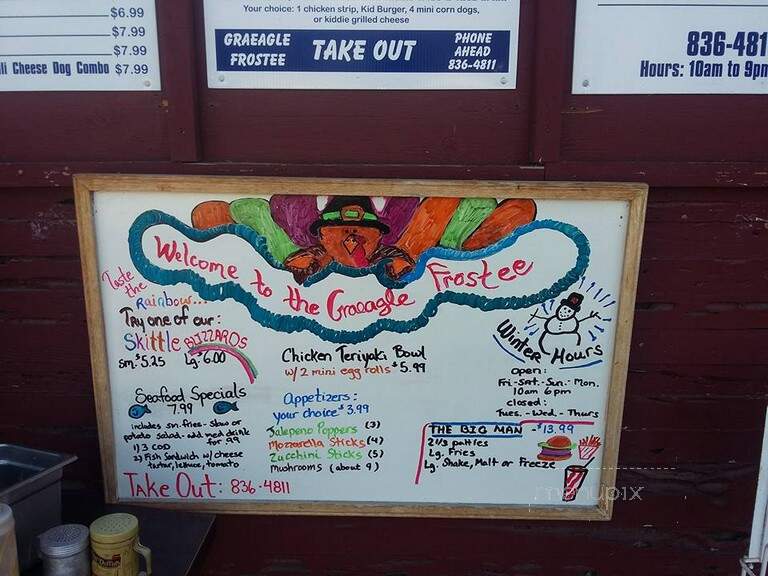 $6.99
$7.99
$7.99
Cheese Dog Combo $7.99
Your choice: 1 chicken strip, Kid Burger, 4 mini corn dogs,
or kiddie grilled cheese
GRAEAGLE
FROSTEE
TAKE OUT
PHONE
AHEAD
836-4811
836-481
Hours: 10am to 9pm
Welcome to the Graeagle Frostee
Taste
the
Rainbow...
Try one of our:
Skittle BLIZZARDS
Sm. $5.25 Lg. $6.00
Seafood Specials
7.99
includes sm. fries - slaw or
potato salad - add med drink
for .99
1) 3 COD
2) Fish Sandwich w/ cheese
tartar, lettuce, tomato
Take Out: 836-4811
Chicken Teriyaki Bowl
w/ 2 mini egg rolls $5.99
Appetizers:
your choice $3.99
Jalepeno Poppers (3)
Mozzarella Sticks (4)
Zucchini Sticks (5)
Mushrooms (about 9)
Winter Hours
open:
Fri.-Sat.-Sun.-Mon.
10am 6pm
closed:
Tues.-Wed-Thurs
THE BIG MAN -$13.99
2 1/3 patties
Lg. Fries
Lg. Shake, Malt or Freeze
menupix